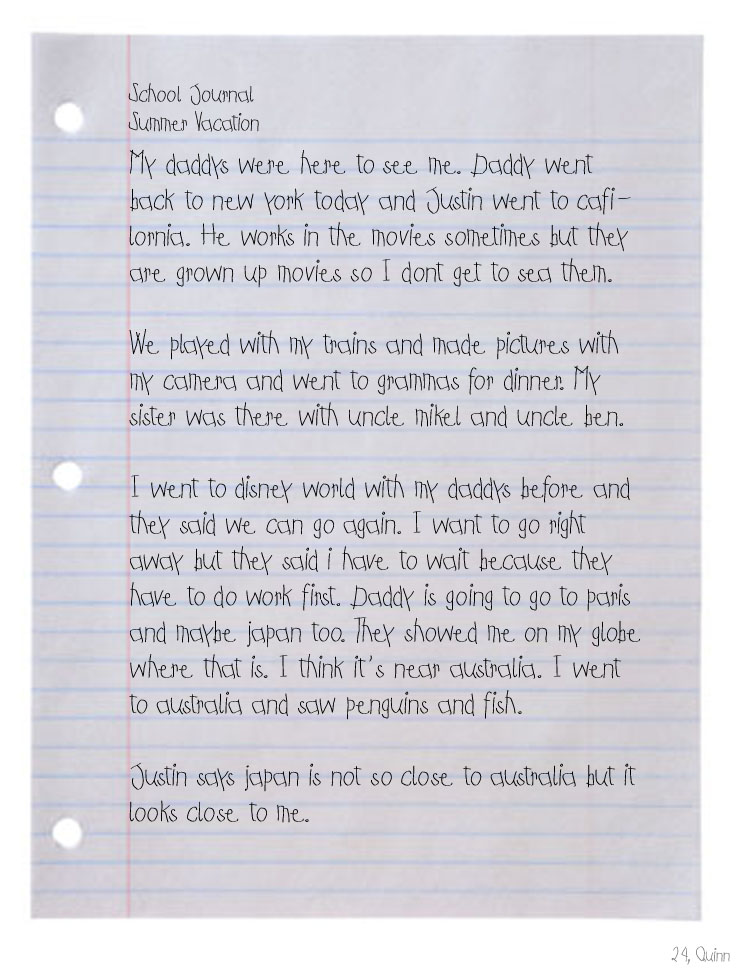 School Journal
Summer Vacation
My daddys were here to see me. Daddy went
back to new york today and Justin went to cafi-
lornia. He works in the movies sometimes but they
are grown up movies so I dont get to sea them.
We played with my trains and made pictures with
my camera and went to grammas for dinner. My
sister was there with uncle mikel and uncle ben.
I went to disney world with my daddys before and
they said we can go again. I want to go right
away but they said i have to wait because they
have to do work first. Daddy is going to go to paris
and maybe japan too. They showed me on my globe
where that is. I think it's near australia. I went
to australia and saw penguins and fish.
Justin says japan is not so close to australia but it
looks close to me.
24, Quinn